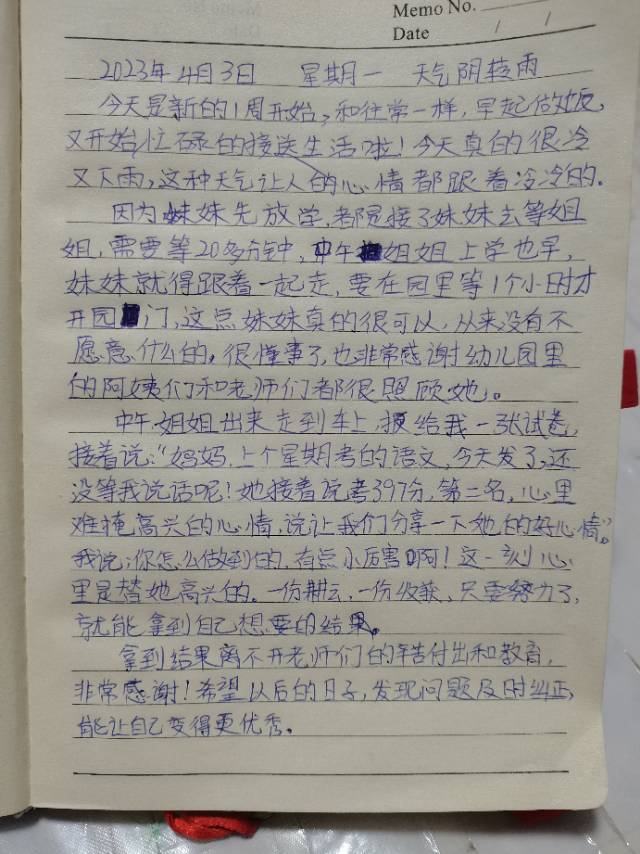 Memo No.
Date / /
2023年4月3日 星期一 天气阴转雨
今天是新的1周开始,和往常一样,早起做饭,
又开始忙碌的接送生活啦!今天真的很冷
又下雨,这种天气让人的心情都跟着冷冷的.
因为妹妹先放学,都是接了妹妹去等姐
姐,需要等20多分钟,中午姐姐上学也早,
妹妹就得跟着一起走,要在园里等1个小时才
开园门,这点妹妹真的很可以,从来没有不
愿意什么的,很懂事了,也非常感谢幼儿园里
的阿姨们和老师们都很照顾她。
中午姐姐出来走到车上,递给我一张试卷,
接着说:"妈妈,上个星期考的语文,今天发了,还
没等我说话呢!她接着说考了97分,第二名,心里
难掩高兴的心情,说让我们分享一下她的好心情"。
我说:你怎么做到的,有点小厉害啊!这一刻心
里是替她高兴的,一份耕云,一份收获,只要努力了,
就能拿到自己想要的结果。
拿到结果离不开老师们的辛苦付出和教育,
非常感谢!希望以后的日子,发现问题及时纠正,
能让自己变得更优秀。